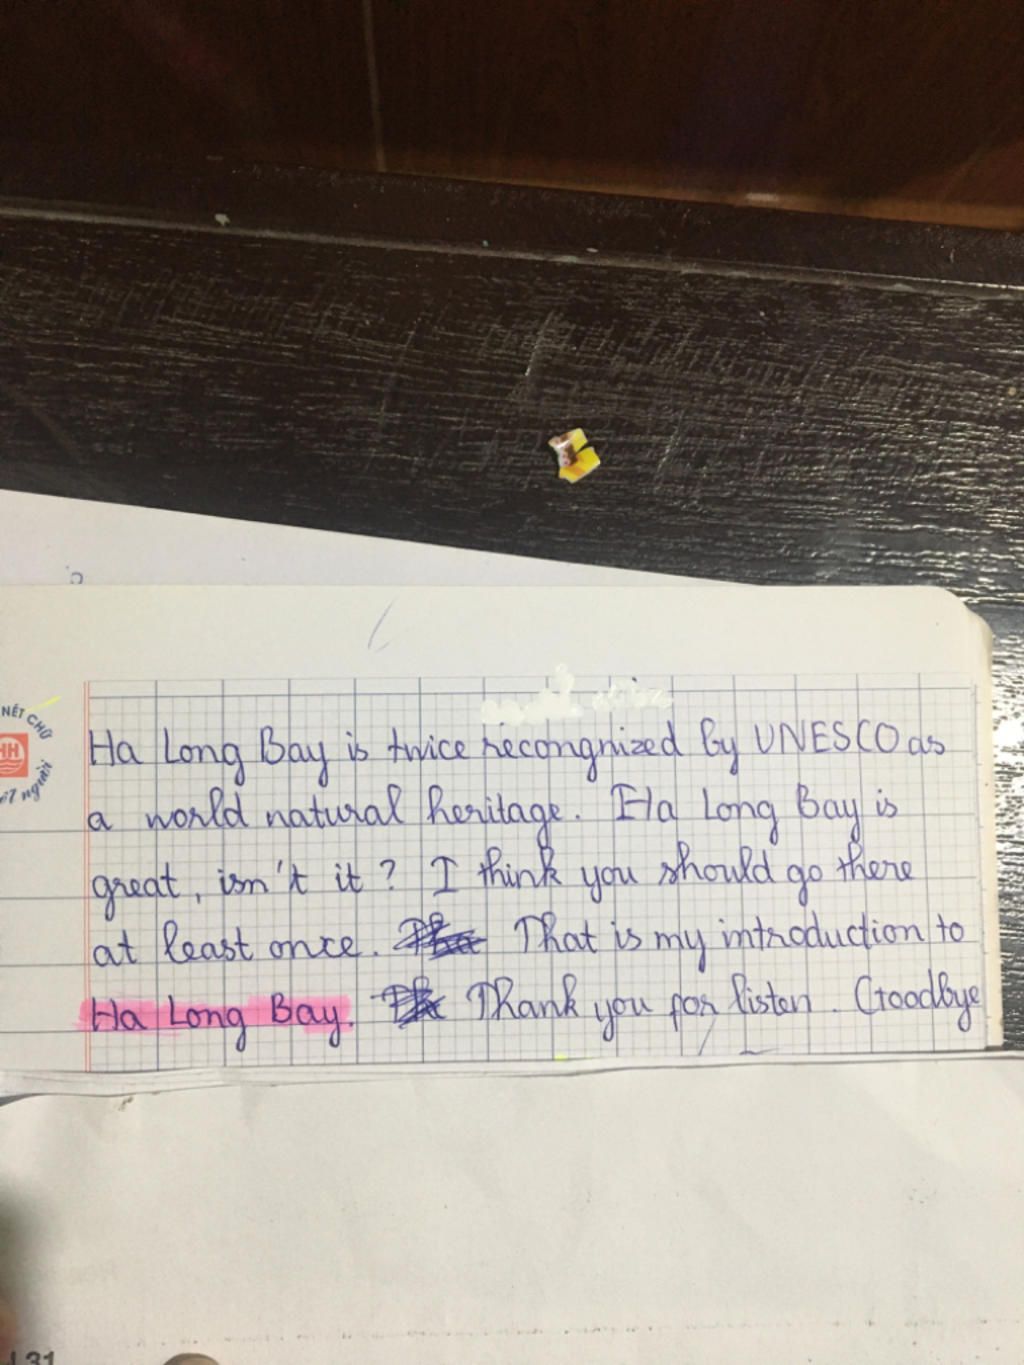 NÉT CHỮ
HH
người
Ha Long Bay is twice recongnized by UNESCO as
a world natural heritage. Ha Long Bay is
great, isn't it? I think you should go there
at least once. That is my introduction to
Ha Long Bay. Thank you for listen. Goodbye
131